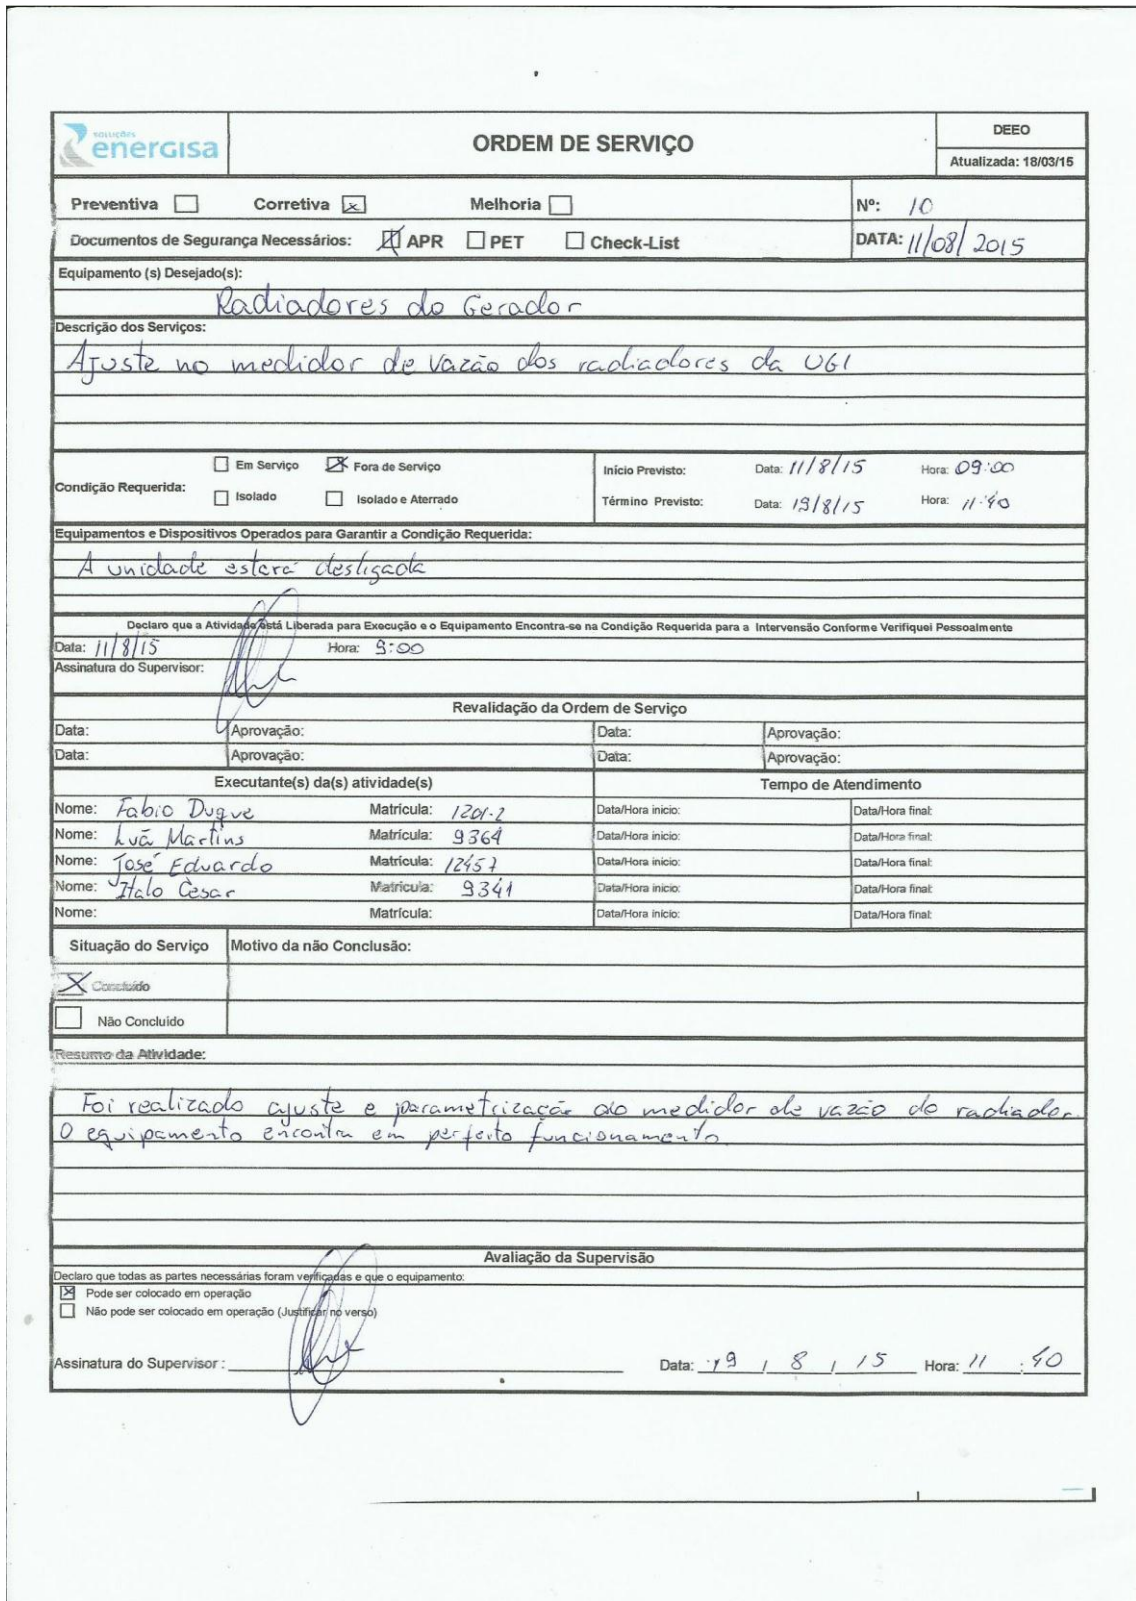 SOLUÇÕES
energisa
ORDEM DE SERVIÇO
DEEO
Atualizada: 18/03/15
Preventiva Corretiva x Melhoria
Nº: 10
Documentos de Segurança Necessários: X APR PET Check-List
DATA: 11/08/2015
Equipamento (s) Desejado(s):
Radiadores do Gerador
Descrição dos Serviços:
Ajuste no medidor de vazão dos radiadores da UG1
Condição Requerida:
Em Serviço X Fora de Serviço
Isolado Isolado e Aterrado
Início Previsto: Data: 11/8/15 Hora: 09:00
Término Previsto: Data: 19/8/15 Hora: 11:40
Equipamentos e Dispositivos Operados para Garantir a Condição Requerida:
A unidade estará desligada
Declaro que a Atividade está Liberada para Execução e o Equipamento Encontra-se na Condição Requerida para a Intervensão Conforme Verifiquei Pessoalmente
Data: 11/8/15 Hora: 9:00
Assinatura do Supervisor:
Revalidação da Ordem de Serviço
Data: Aprovação: Data: Aprovação:
Data: Aprovação: Data: Aprovação:
Executante(s) da(s) atividade(s) Tempo de Atendimento
Nome: Fabio Duque Matrícula: 1201-2 Data/Hora início: Data/Hora final:
Nome: Luã Martins Matrícula: 9364 Data/Hora início: Data/Hora final:
Nome: José Eduardo Matrícula: 12457 Data/Hora início: Data/Hora final:
Nome: Italo Cèsar Matrícula: 9341 Data/Hora início: Data/Hora final:
Nome: Matrícula: Data/Hora início: Data/Hora final:
Situação do Serviço Motivo da não Conclusão:
X Concluído
Não Concluido
Resumo da Atividade:
Foi realizado ajuste e parametrização do medidor de vazão do radiador.
O equipamento encontra em perfeito funcionamento
Avaliação da Supervisão
Declaro que todas as partes necessárias foram verificadas e que o equipamento:
X Pode ser colocado em operação
Não pode ser colocado em operação (Justificar no verso)
Assinatura do Supervisor : Data: 19 / 8 / 15 Hora: 11 : 40